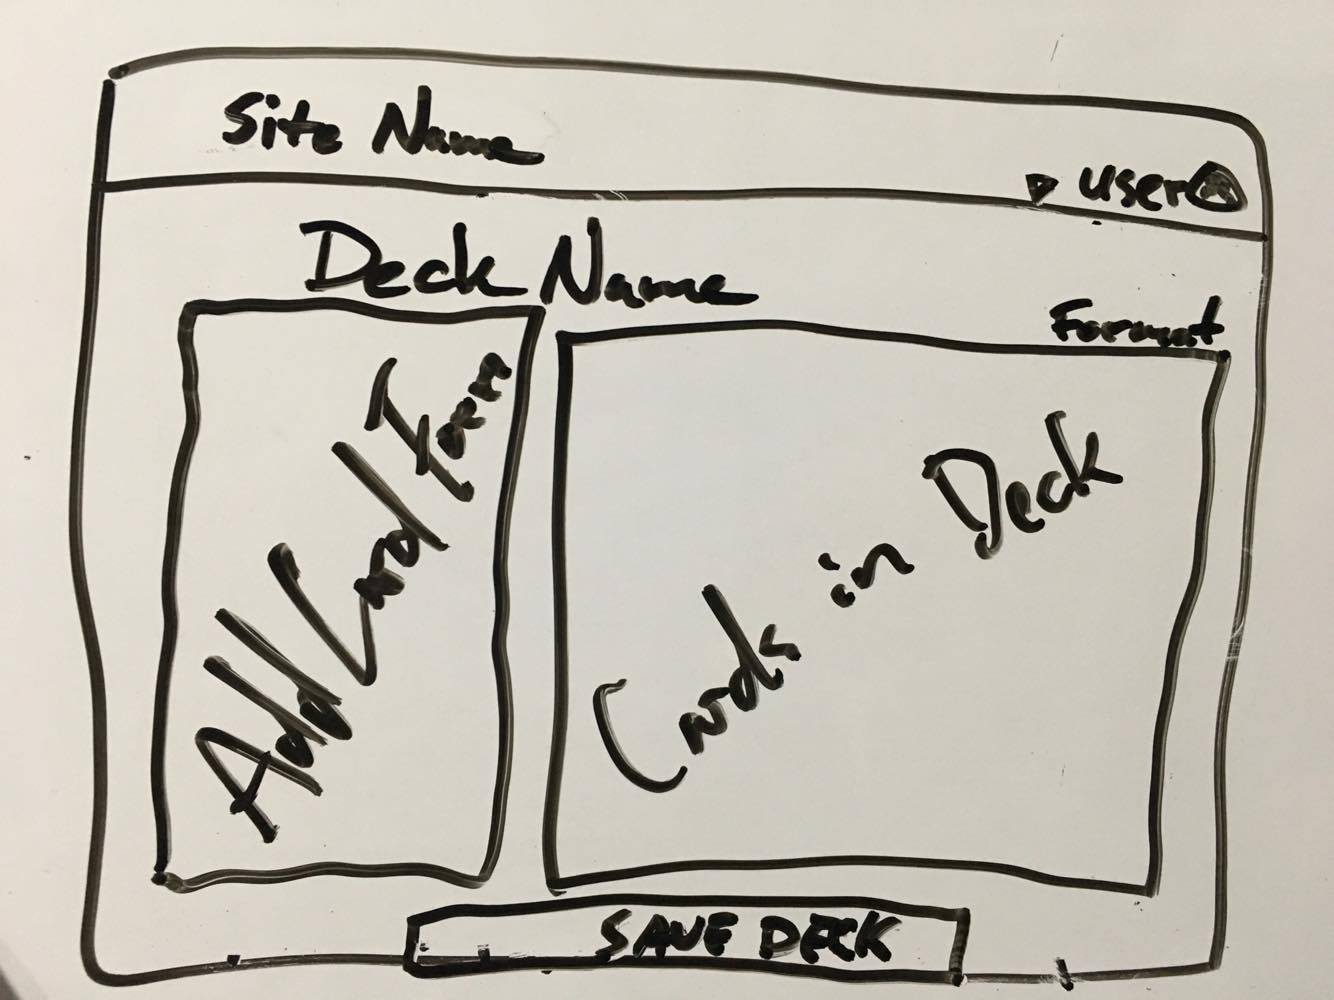 Site Name
user
Deck Name
Format
Add Card Form
Cards in Deck
SAVE DECK